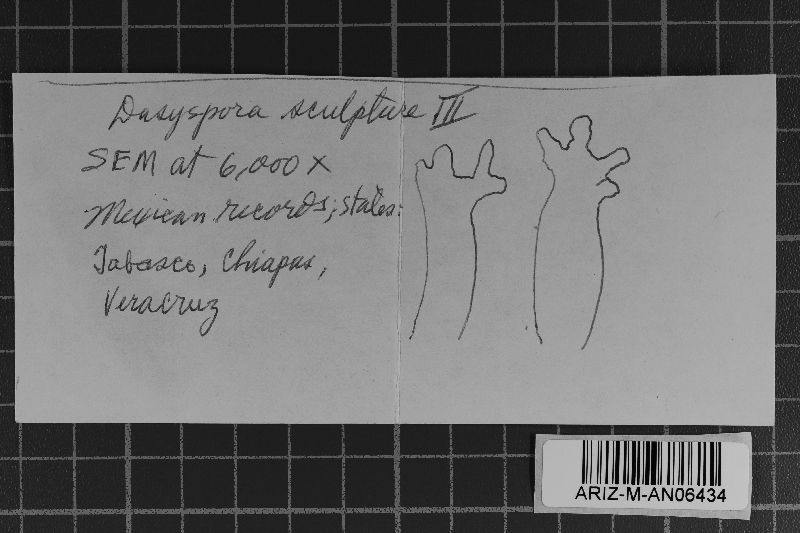 Dasyspora sculpture III
SEM at 6,000 X
Mexican records; states:
Tabasco, Chiapas,
Veracruz
ARIZ-M-AN06434